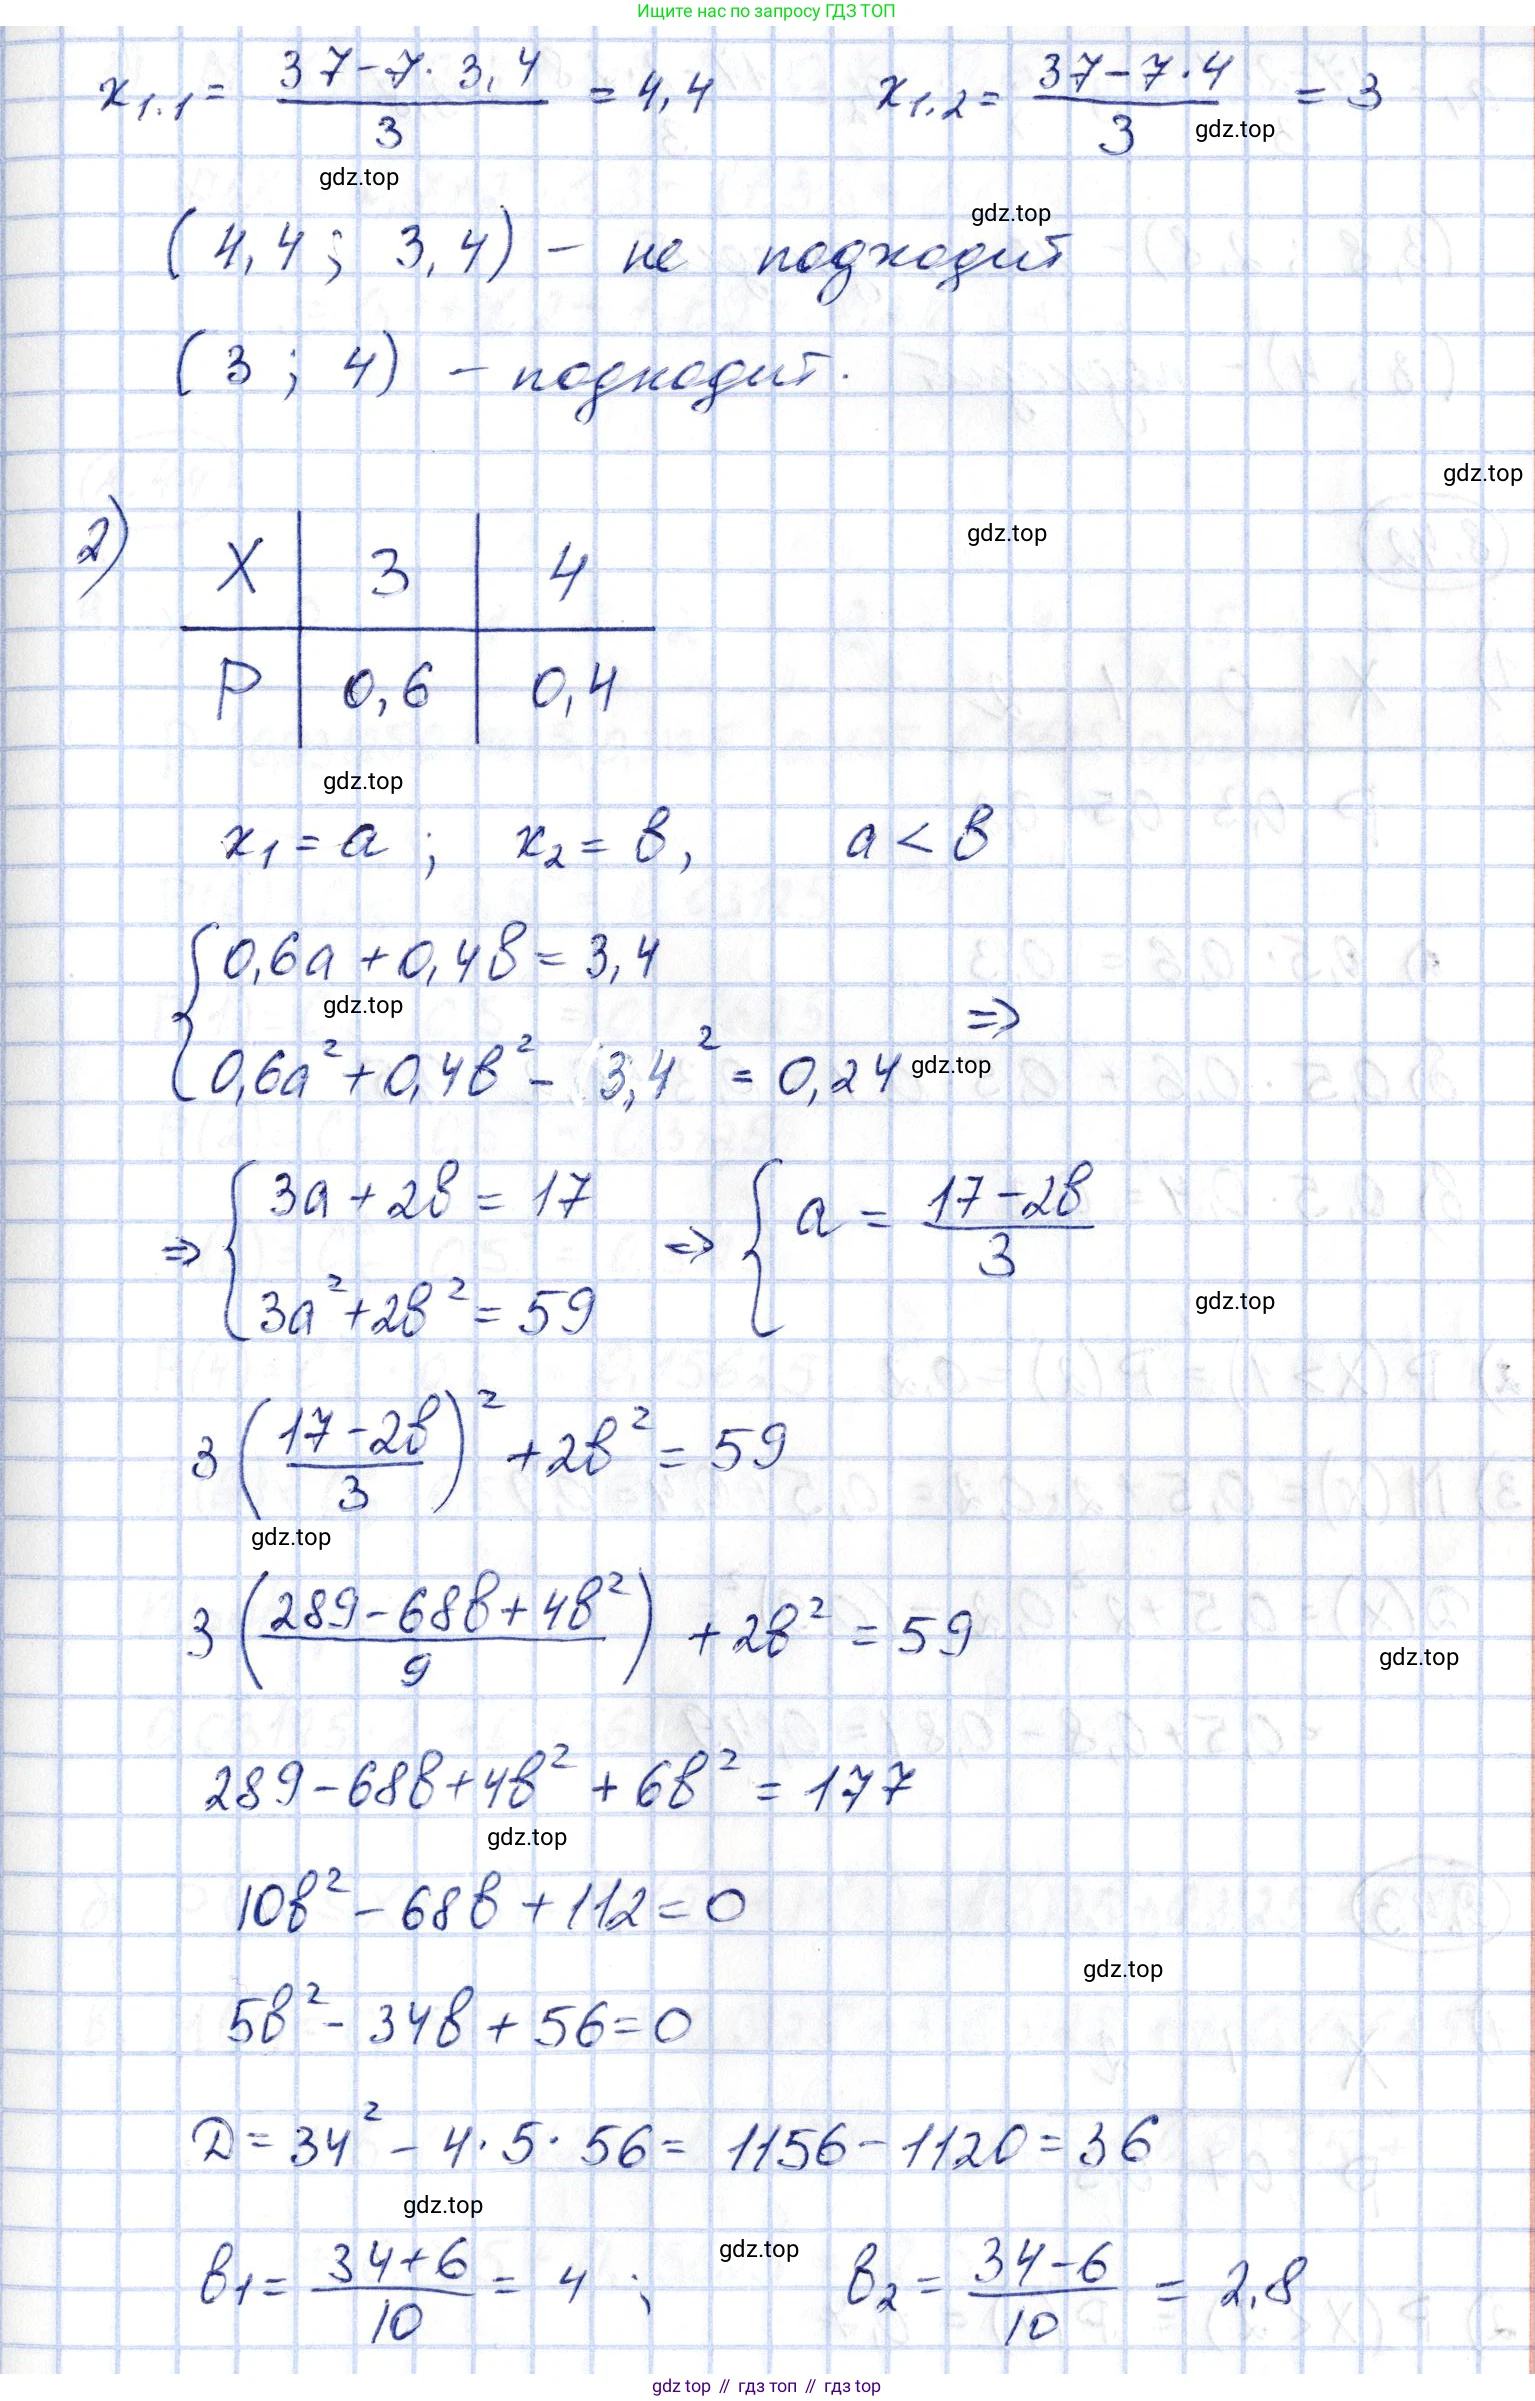 Ищите нас по запросу ГДЗ ТОП
x₁.₁ = (37 − 7 · 3,4) / 3 = 4,4    x₁.₂ = (37 − 7 · 4) / 3 = 3
gdz.top
gdz.top
gdz.top
(4,4 ; 3,4) – не подходит
(3 ; 4) – подходит.
gdz.top
2) X | 3 | 4
gdz.top
P | 0,6 | 0,4
gdz.top
x₁ = a ; x₂ = b,    a < b
{ 0,6a + 0,4b = 3,4
gdz.top
0,6a² + 0,4b² − 3,4² = 0,24 ⇒
gdz.top
⇒ { 3a + 2b = 17    ⇒ { a = (17 − 2b) / 3
3a² + 2b² = 59
gdz.top
3 ((17 − 2b) / 3)² + 2b² = 59
gdz.top
3 ((289 − 68b + 4b²) / 9) + 2b² = 59
gdz.top
289 − 68b + 4b² + 6b² = 177
gdz.top
10b² − 68b + 112 = 0
gdz.top
5b² − 34b + 56 = 0
D = 34² − 4 · 5 · 56 = 1156 − 1120 = 36
gdz.top
b₁ = (34 + 6) / 10 = 4 ;    b₂ = (34 − 6) / 10 = 2.8
gdz.top
gdz.top // гдз топ // гдз top